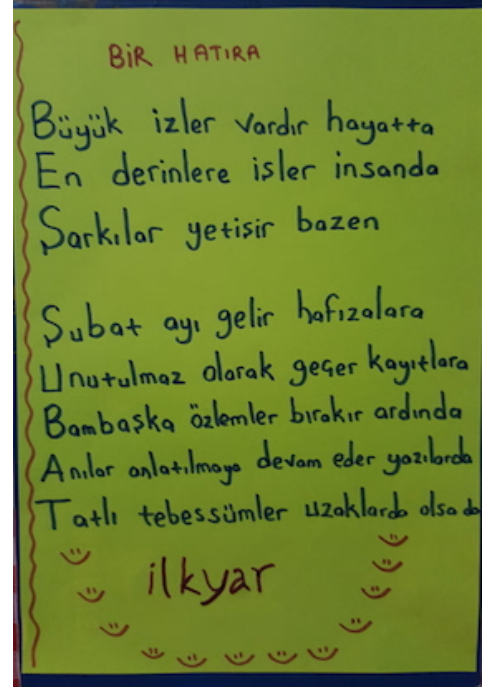 BİR HATIRA
Büyük izler vardır hayatta
En derinlere işler insanda
Şarkılar yetişir bazen
Şubat ayı gelir hafızalara
Unutulmaz olarak geçer kayıtlara
Bambaşka özlemler bırakır ardında
Anılar anlatılmaya devam eder yazılarda
Tatlı tebessümler uzaklarda olsa da
ilkyar